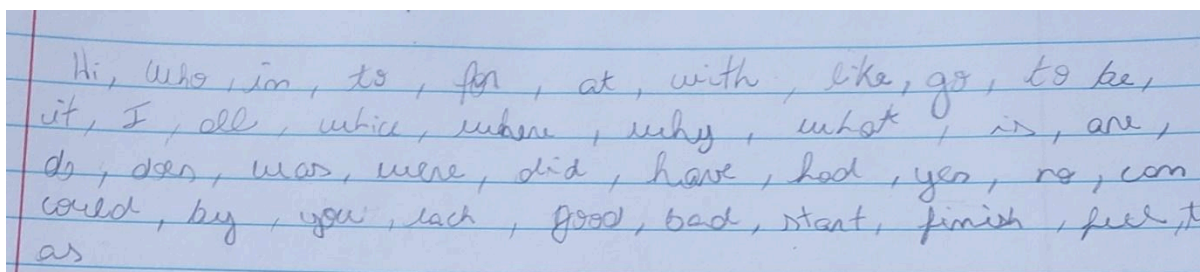 Hi, who, in, to, for, at, with, like, go, to be,
it, I, all, whice, where, why, what, is, are,
do, does, was, were, did, have, had, yes, no, can
could, by, you, lach, good, bad, start, finish, feel, t
as